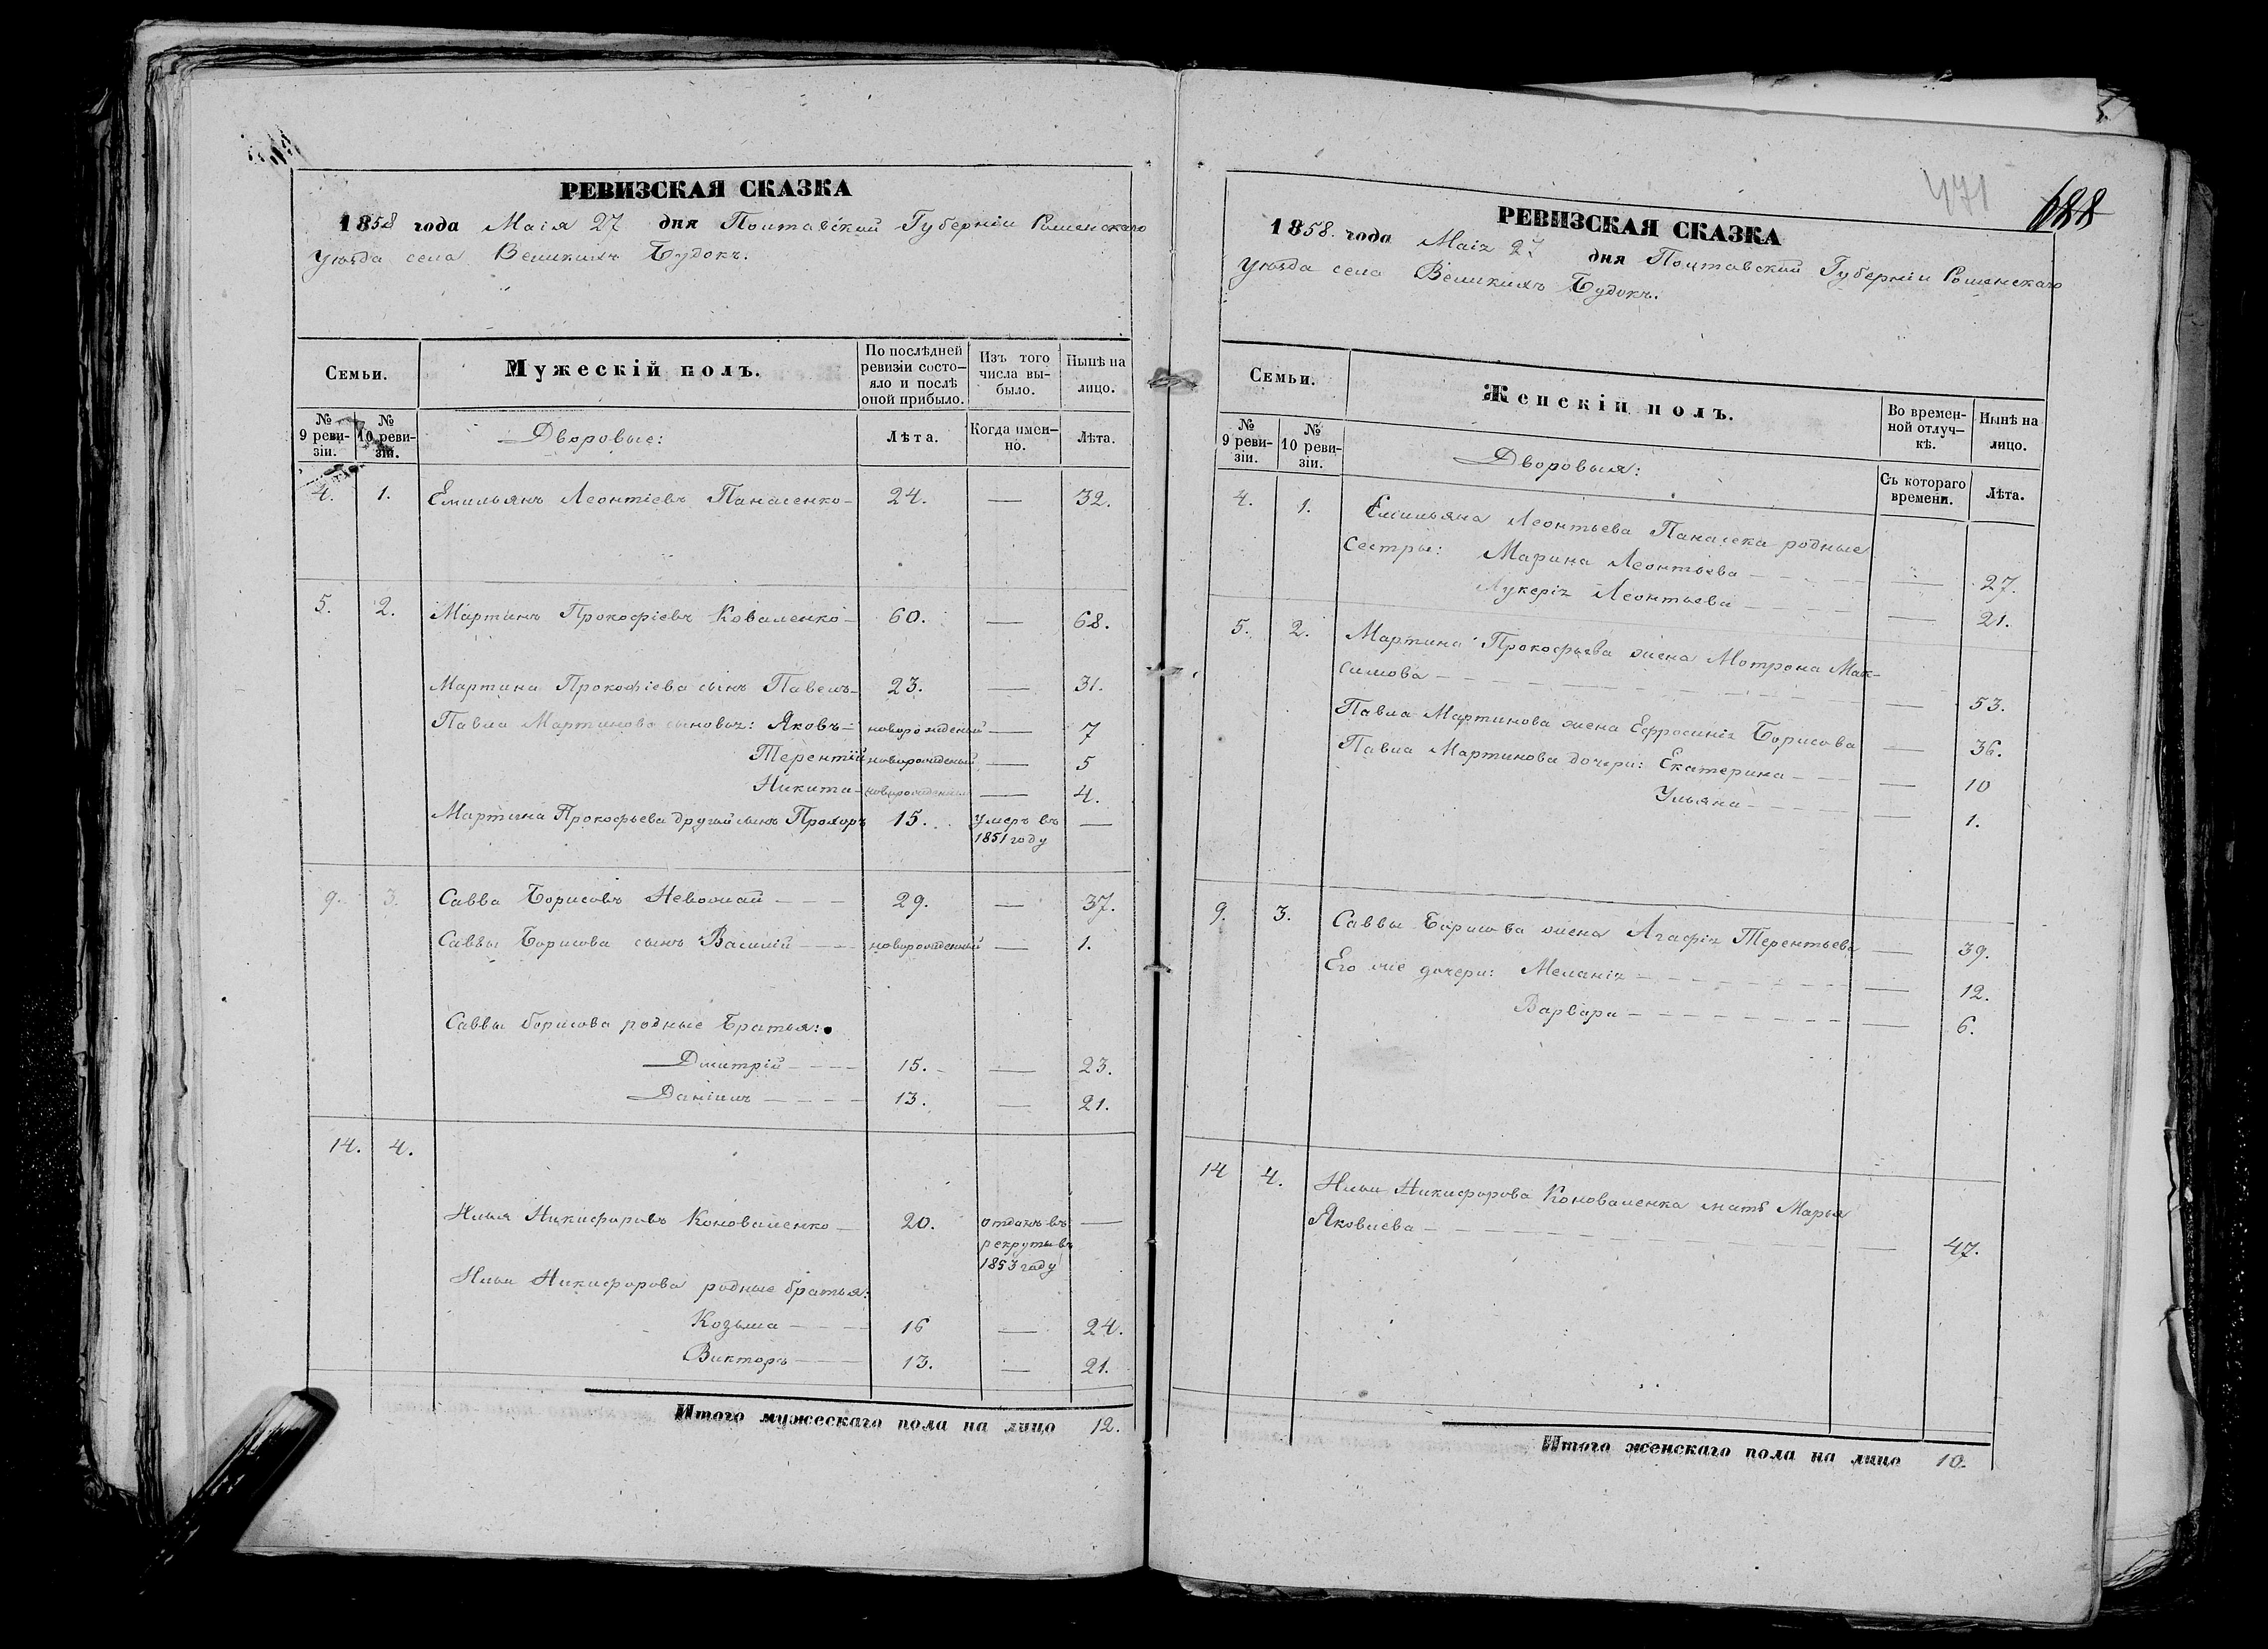 РЕВИЗСКАЯ СКАЗКА
1858 года Маія 27 дня Полтавской Губерніи Роменскаго
уѣзда села Великихъ Будокъ.
Семьи.
Мужескій полъ.
По послѣдней ревизіи состояло и послѣ оной прибыло.
Изъ того числа выбыло.
Нынѣ на лицо.
№ 9 ревизіи.
№ 10 ревизіи.
Дворовые:
Лѣта.
Когда именно.
Лѣта.
4. 1. Емильянъ Леонтіевъ Панасенко - 24. — 32.
5. 2. Мартинъ Прокофіевъ Коваленко - 60. — 68.
Мартина Прокофіева сынъ Павелъ - 23. — 31.
Павла Мартинова сыновья: Яковъ - новорожденый — 7
Терентій новорожденый — 5
Никита - новорожденый — 4.
Мартина Прокофьева другой сынъ Прохоръ 15. умеръ въ —
1851 году
9. 3. Савва Борисовъ Невожай - - - 29. — 37.
Саввы Борисова сынъ Василій - - - новорожденный — 1.
Саввы Борисова родные братья:
Дмитрій - - - - 15. — 23.
Даніилъ - - - - 13. — 21.
14. 4.
Илья Никифоровъ Коноваленко - 20. отданъ въ —
рекруты въ
1853 году
Ильи Никифорова родные братья:
Козьма - - - - 16 — 24.
Викторъ - - - 13. — 21.
Итого мужескаго пола на лицо 12.
471
688
РЕВИЗСКАЯ СКАЗКА
1858. года Маія 27 дня Полтавской Губерніи Роменскаго
уѣзда села Великихъ Будокъ.
Семьи.
Женскій полъ.
Во временной отлучкѣ.
Нынѣ на лицо.
№ 9 ревизіи.
№ 10 ревизіи.
Дворовыя:
Съ котораго времени.
Лѣта.
4. 1. Емильяна Леонтьева Панасенка родные
сестры: Марина Леонтьева - - - - — 27.
Лукерія Леонтьева - - - - — 21.
5. 2. Мартина Прокофьева жена Мотрона Мак-
симова - - - - - - - - — 53.
Павла Мартинова жена Ефросинія Борисова — 36.
Павла Мартинова дочери: Екатерина - - - — 10
Ульяна - - - - — 1.
9. 3. Саввы Борисова жена Агафія Терентьева — 39.
Его же дочери: Меланія - - - - - - - — 12.
Варвара - - - - - - - — 6.
14 4. Ильи Никифорова Коноваленка мать Марья
Яковлева - - - - - - - - - — 47.
Итого женскаго пола на лицо 10.